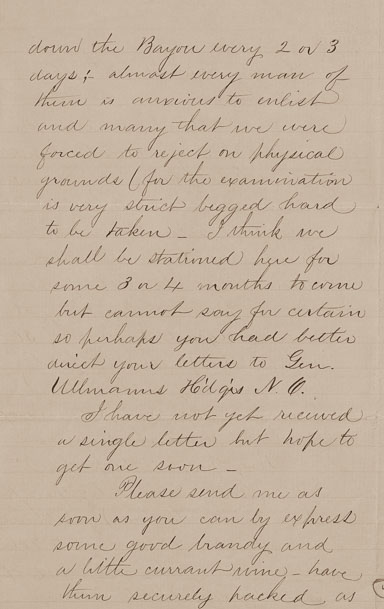 down the Bayou every 2 or 3
days;- almost every man of
them is anxious to enlist
and many that we were
forced to reject on physical
grounds (for the examination
is very strict begged hard
to be taken - I think we
shall be stationed here for
some 3 or 4 months to come
but cannot say for certain
so perhaps you had better
direct your letters to Gen.
Ullmanns Hdqrs N. O.
I have not yet received
a single letter but hope to
get one soon -
Please send me as
soon as you can by express
some good brandy and
a little currant wine - have
them securely packed as